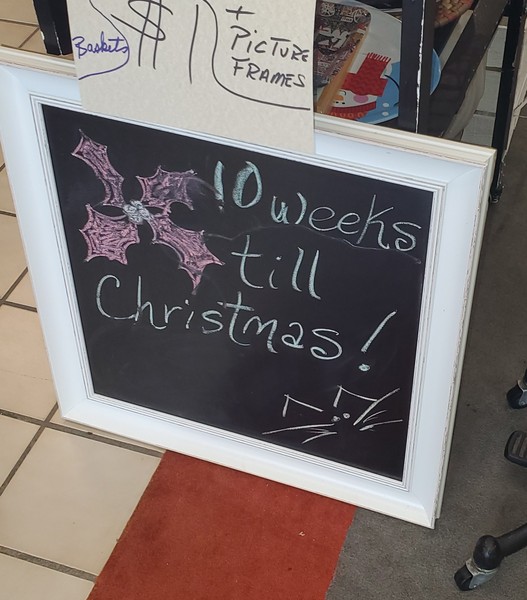 Baskets $1 + PICTURE FRAMES
10 weeks
till
Christmas!